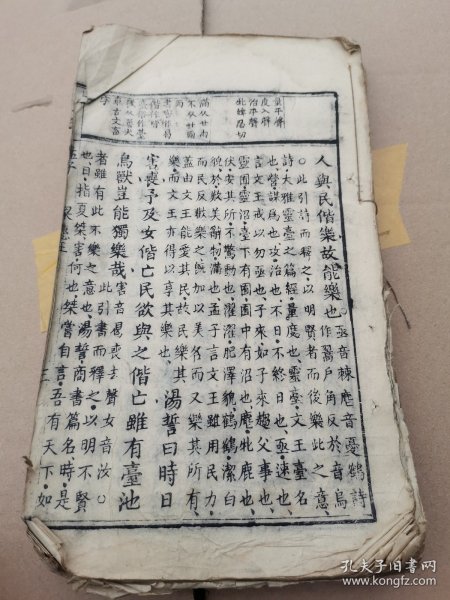 人與民偕樂故能樂也亟音棘麀音憂鶴詩
作翯戶角反於音烏
此引詩而釋之以明賢者而後樂此之意
詩大雅靈臺之篇經量度也靈臺文王臺名
也營謀爲也攻治也不日不終日也亟速也
言文王戒以勿亟也子來如子來趨父事也
靈囿靈沼臺下有囿囿中有沼也麀牝鹿也
伏安其所不驚動也濯濯肥澤貌鶴鶴潔白
貌於歎美辭牣滿也孟子言文王雖用民力
而民反歡樂之旣加以美名而又樂其所有
蓋由文王能愛其民故民樂其
樂而文王亦得以享其樂也
湯誓曰時日
害喪予及女偕亡民欲與之偕亡雖有臺池
鳥獸豈能獨樂哉害音曷喪去聲女音汝
此引書而釋之以明不賢
者雖有此不樂之意也湯誓商書篇名時是
也日指夏桀害何也桀嘗自言吾有天下如
三
孔夫子旧书网
www.kongfz.com